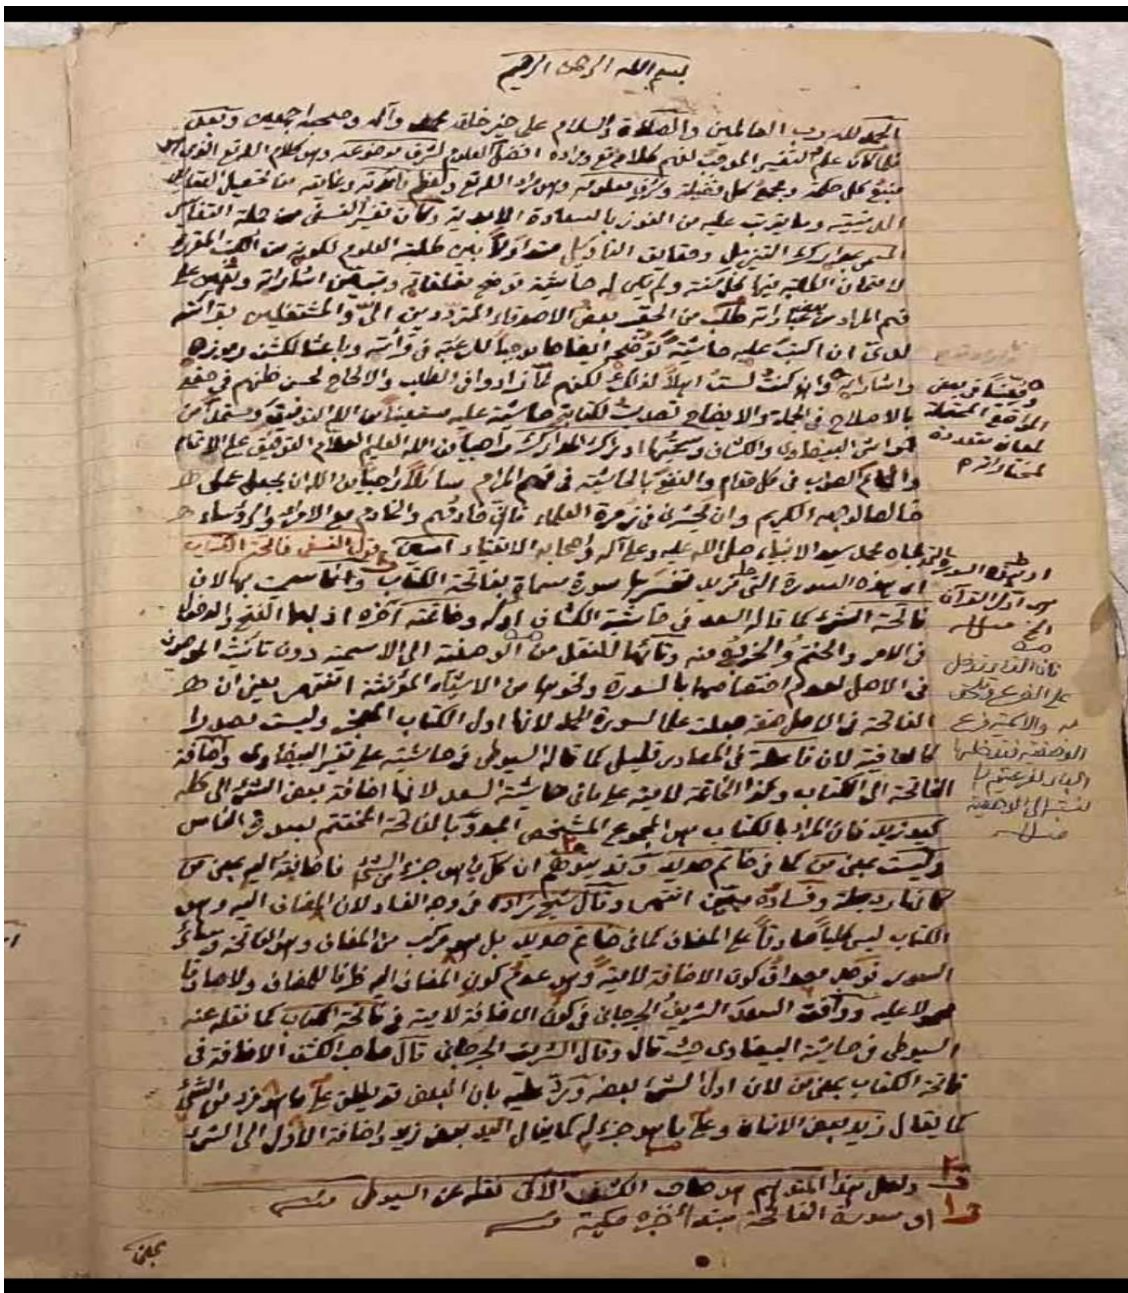 بسم الله الرحمن الرحيم
الحمد لله رب العالمين والصلاة والسلام على خير خلقه محمد وآله وصحبه اجمعين وبعد
فلما كان علم التفسير الموجب لفهم كلامه تع ومراده افضل العلوم لشرف موضوعه وهو كلام الله تع الذى هو
منبع كل حكمة ومجمع كل فضيلة وشرف معلومه وهو مراد الله تع وغايته من تحصيل العقائد
الدينية وما يترتب عليه من الفوز بالسعادة الابدية وكان تفسير النسفى من جملة التفاسير
المسمى بمدارك التنزيل وحقائق التاويل متداولاً بين طلبة العلوم لكونه من الكتب المقررة
لامتحان الطلبة فيها كل سنة ولم يكن له حاشية توضح مغلقاته وتبين اشاراته وتعين على
فهم المراد من عباراته طلب من الحقير بعض الاصدقاء المترددين الىّ والمشتغلين بقراءته
لدىّ ان اكتب عليه حاشية توضح الفاظه موجباً للرغبة فى قرأته وباعثا لكشف رموزه
واشاراته وانى كنت لست اهلاً لذلك لكنهم لما زادوا فى الطلب والالحاح لحسن ظنهم فى حقى
بالاصلاح فى الجملة والايضاح تصديت لكتابة حاشية عليه مستعيناً من الله التوفيق ومستمداً من
حواشى البيضاوى والكشاف وسميتها ادراك المدارك راجيا من الله العليم العلام التوفيق على الاتمام
والهام الصواب فى كل مقام والنفع بالحاشية فى فهم المرام سائلاً راجياً من الله ان يجعل عملى
خالصا لوجهه الكريم وان يحشرنى فى زمرة العلماء فانى خادمهم والخادم مع الامراء والرؤساء
بجاه محمد سيد الانبياء صلى الله عليه وعلى آله واصحابه الاتقياء آمين قول النسفى فاتحة الكتاب
اى هذه السورة التى نريد تفسيرها سورة مسماة بفاتحة الكتاب وانما سميت بها لان
فاتحة الشئ كما قاله السعد فى حاشية الكشاف اوله وخاتمته آخره اذ بهما الفتح والدخول
فى الامر والختم والخروج منه وتائها للنقل من الوصفية الى الاسمية دون تانيث الموصوف
فى الاصل لعدم اختصاصها بالسورة ونحوها من الاشياء المؤنثة انتهى يعنى ان
الفاتحة فى الاصل صفة جعلت علما لسورة الحمد لانها اول الكتاب المعجز وليست مصدرا
كالعافية لان فاعلة فى المصادر قليل كما قاله السيوطى فى حاشيته على تفسير البيضاوى واضافة
الفاتحة الى الكتاب وكذا الخاتمة لامية على ما فى حاشية السعد لانها اضافة بعض الشئ الى كله
كيد زيد فان المراد بالكتاب هو المجموع المشخص المبدو بالفاتحة المختتم بسورة الناس
وليست بمعنى من كما فى خاتم حديد وقد يتوهم ان كل ما هو جزء من الشئ فاضافته اليه بمعنى من
كانما رد جملة وفساده مبين انتهى وقال شيخ زاده فى وجه الفساد لان المضاف اليه وهو
الكتاب ليس كلياً صادقاً على المضاف كما فى خاتم حديد بل هو مركب من المضاف وهو الفاتحة وسائر
السور فوجد مصداق كون الاضافة لامية وهو عدم كون المضاف اليه ظرفا للمضاف ولا صادقا
محمولا عليه ووافق السعد الشريف الجرجانى فى كون الاضافة لامية فى فاتحة الكتاب كما نقله عنه
السيوطى فى حاشية البيضاوى حيث قال وقال الشريف الجرجانى قال صاحب الكشف الاضافة فى
فاتحة الكتاب بمعنى من لان اول الشئ بعضه ورد عليه بان البعض قد يطلق على ما هو فرد من الشئ
كما يقال زيد بعض الانسان وعلى ما هو جزء له كما يقال اليد بعض زيد واضافة الاول الى الشئ
وتفتيشا فى بعض
المواقع المحتملة
لمعان متعددة
اى هذه السورة
هى اول القرآن
الخ منه
فان التاء تدخل
على الفرع
والاسمية فرع
الوصفية
التاء لفرعيتها
لنسبة الى الوصفية
منه
ولعل هذا المتوهم هو صاحب الكشف الآتى نقله عن السيوطى منه
اى سورة الفاتحة مبتدأ خبره مكية منه